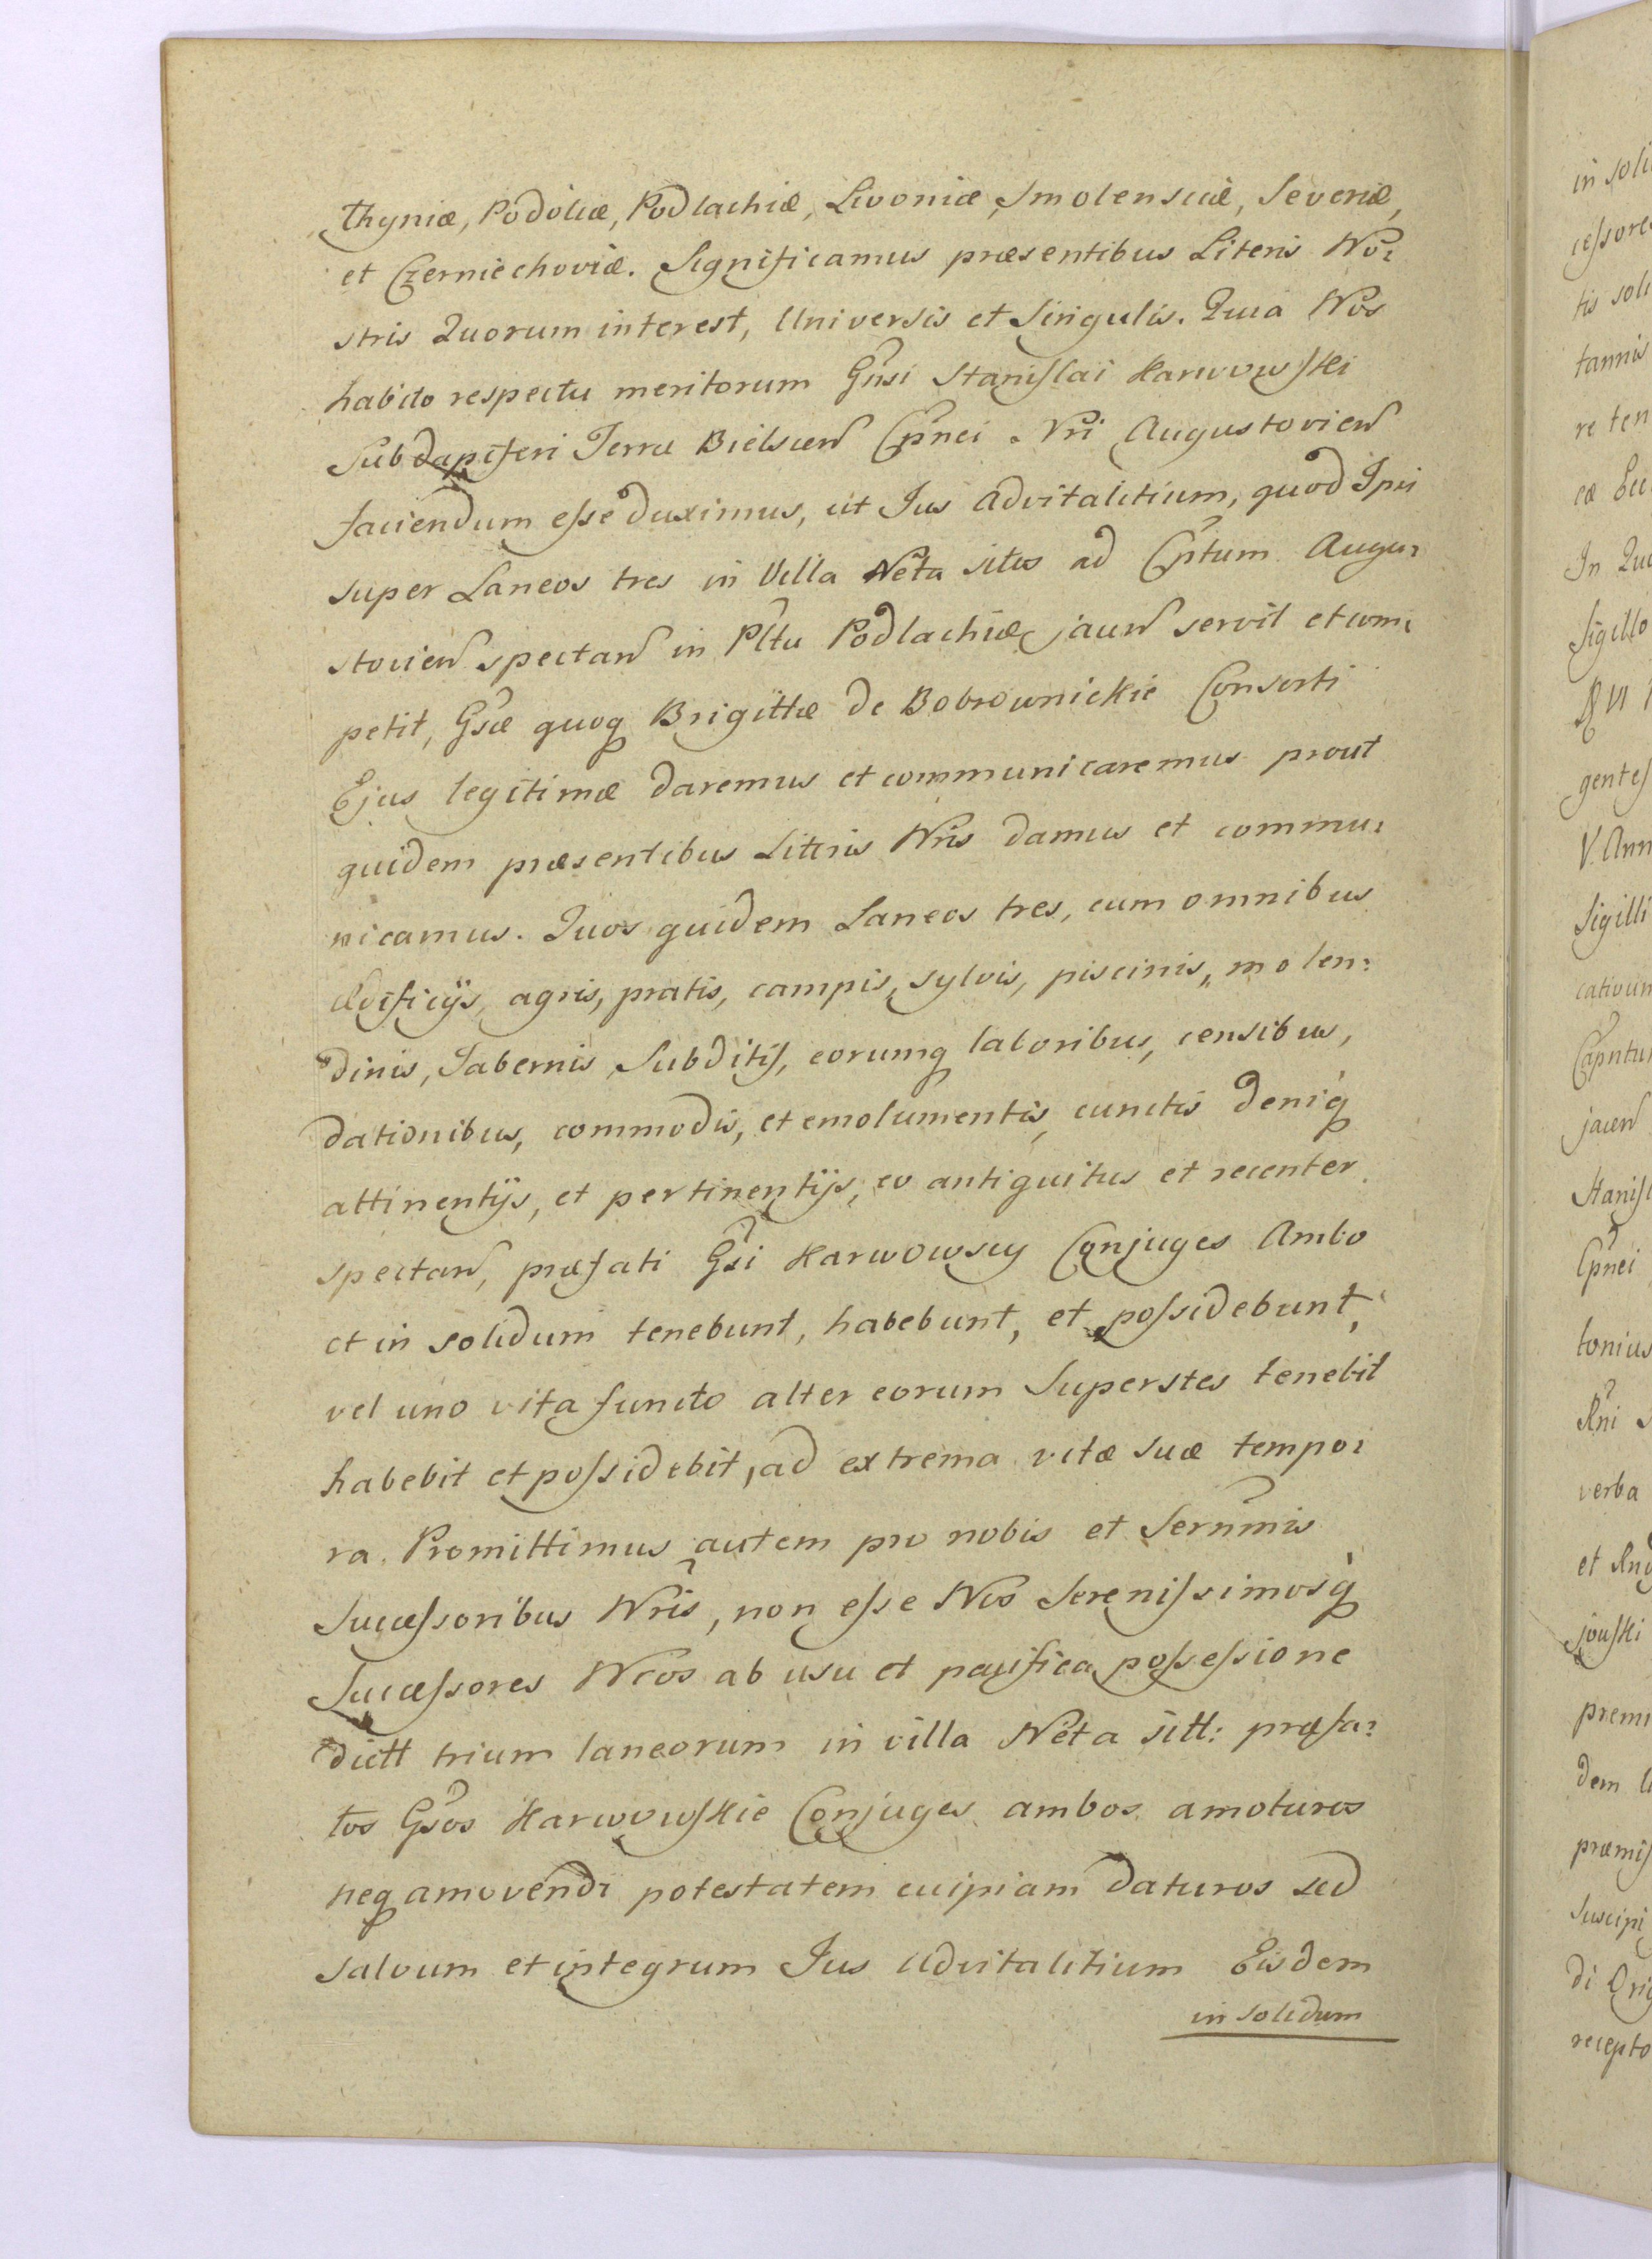 thyniæ, Podoliæ, Podlachiæ, Livoniæ, Smolensciæ, Severiæ,
et Czerniechoviæ. Significamus præsentibus Literis No:
stris Quorum interest, Universis et Singulis. Quia Nos
habito respectu meritorum Gnsi Stanislai Karwowski
Subdapiferi Terræ Bielscen Cpnei Nri Augustovien
faciendum esse duximus, ut Jus advitalitium, quod Ipsi
super Laneos tres in Villa Neta sitos ad Cptum Augu:
stovien spectan in Pltu Podlachiæ jacen servit et com:
petit, Gsæ quoq Brigittæ de Bobrownickie Consorti
Ejus legitimæ daremus et communicaremus prout
quidem præsentibus Literis Nris damus et commu:
nicamus. Quos quidem Laneos tres, cum omnibus
ædificijs, agris, pratis, campis, sylvis, piscinis, molen:
dinis, Tabernis, Subditis, eorumq laboribus, censibus,
dationibus, commodis, et emolumentis, cunctis deniq
attinentijs, et pertinentijs, eo antiquitus et recenter
spectan, præfati Gsi Karwowscy Conjuges Ambo
et in solidum tenebunt, habebunt, et possidebunt,
vel uno vita functo alter eorum Superstes tenebit
habebit et possidebit, ad extrema vitæ suæ tempo:
ra. Promittimus autem pro nobis et Sernmis
Sucessoribus Nris, non esse Nos Serenissimosq
Sucæssores Nros ab usu et pacifica possessione
dictt trium laneorum in villa Neta sitt: præfa:
tos Gsos Karwowskie Conjuges ambos amoturos
neq amovendi potestatem cuipiam daturos sed
salvum et integrum Jus Advitalitium Eisdem
in solidum
in soli
cessore
tis soli
tannis
re ten
Sigillo
gentes
V. Ann
Sigilli
cativum
Capntu
jacen
Stanisl
Cpnei
tonius
verba
jouski
premi
dem
præmis
suscipi
di Orig
recepto